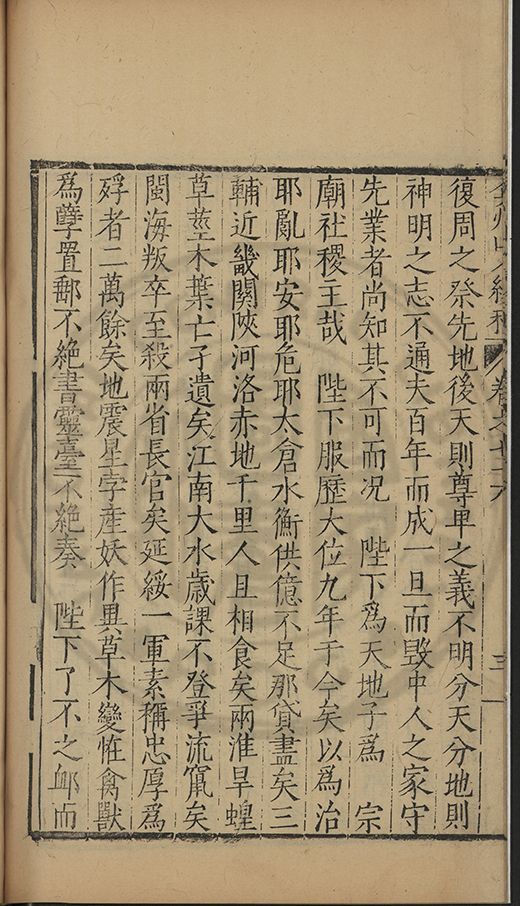 復周之祭先地後天則尊卑之義不明分天分地則
神明之志不通夫百年而成一旦而毀中人之家守
先業者尚知其不可而况 陛下爲天地子爲 宗
廟社稷主哉 陛下服歷大位九年于今矣以爲治
耶亂耶安耶危耶太倉水衡供億不足那貸盡矣三
輔近畿關陜河洛赤地千里人且相食矣兩淮旱蝗
草莖木葉亡孑遺矣江南大水歳課不登爭流竄矣
閩海叛卒至殺兩省長官矣延綏一軍素稱忠厚爲
殍者二萬餘矣地震星孛産妖作異草木變恠禽獸
爲孽置郵不絶書靈臺不絶奏 陛下了不之䘏而